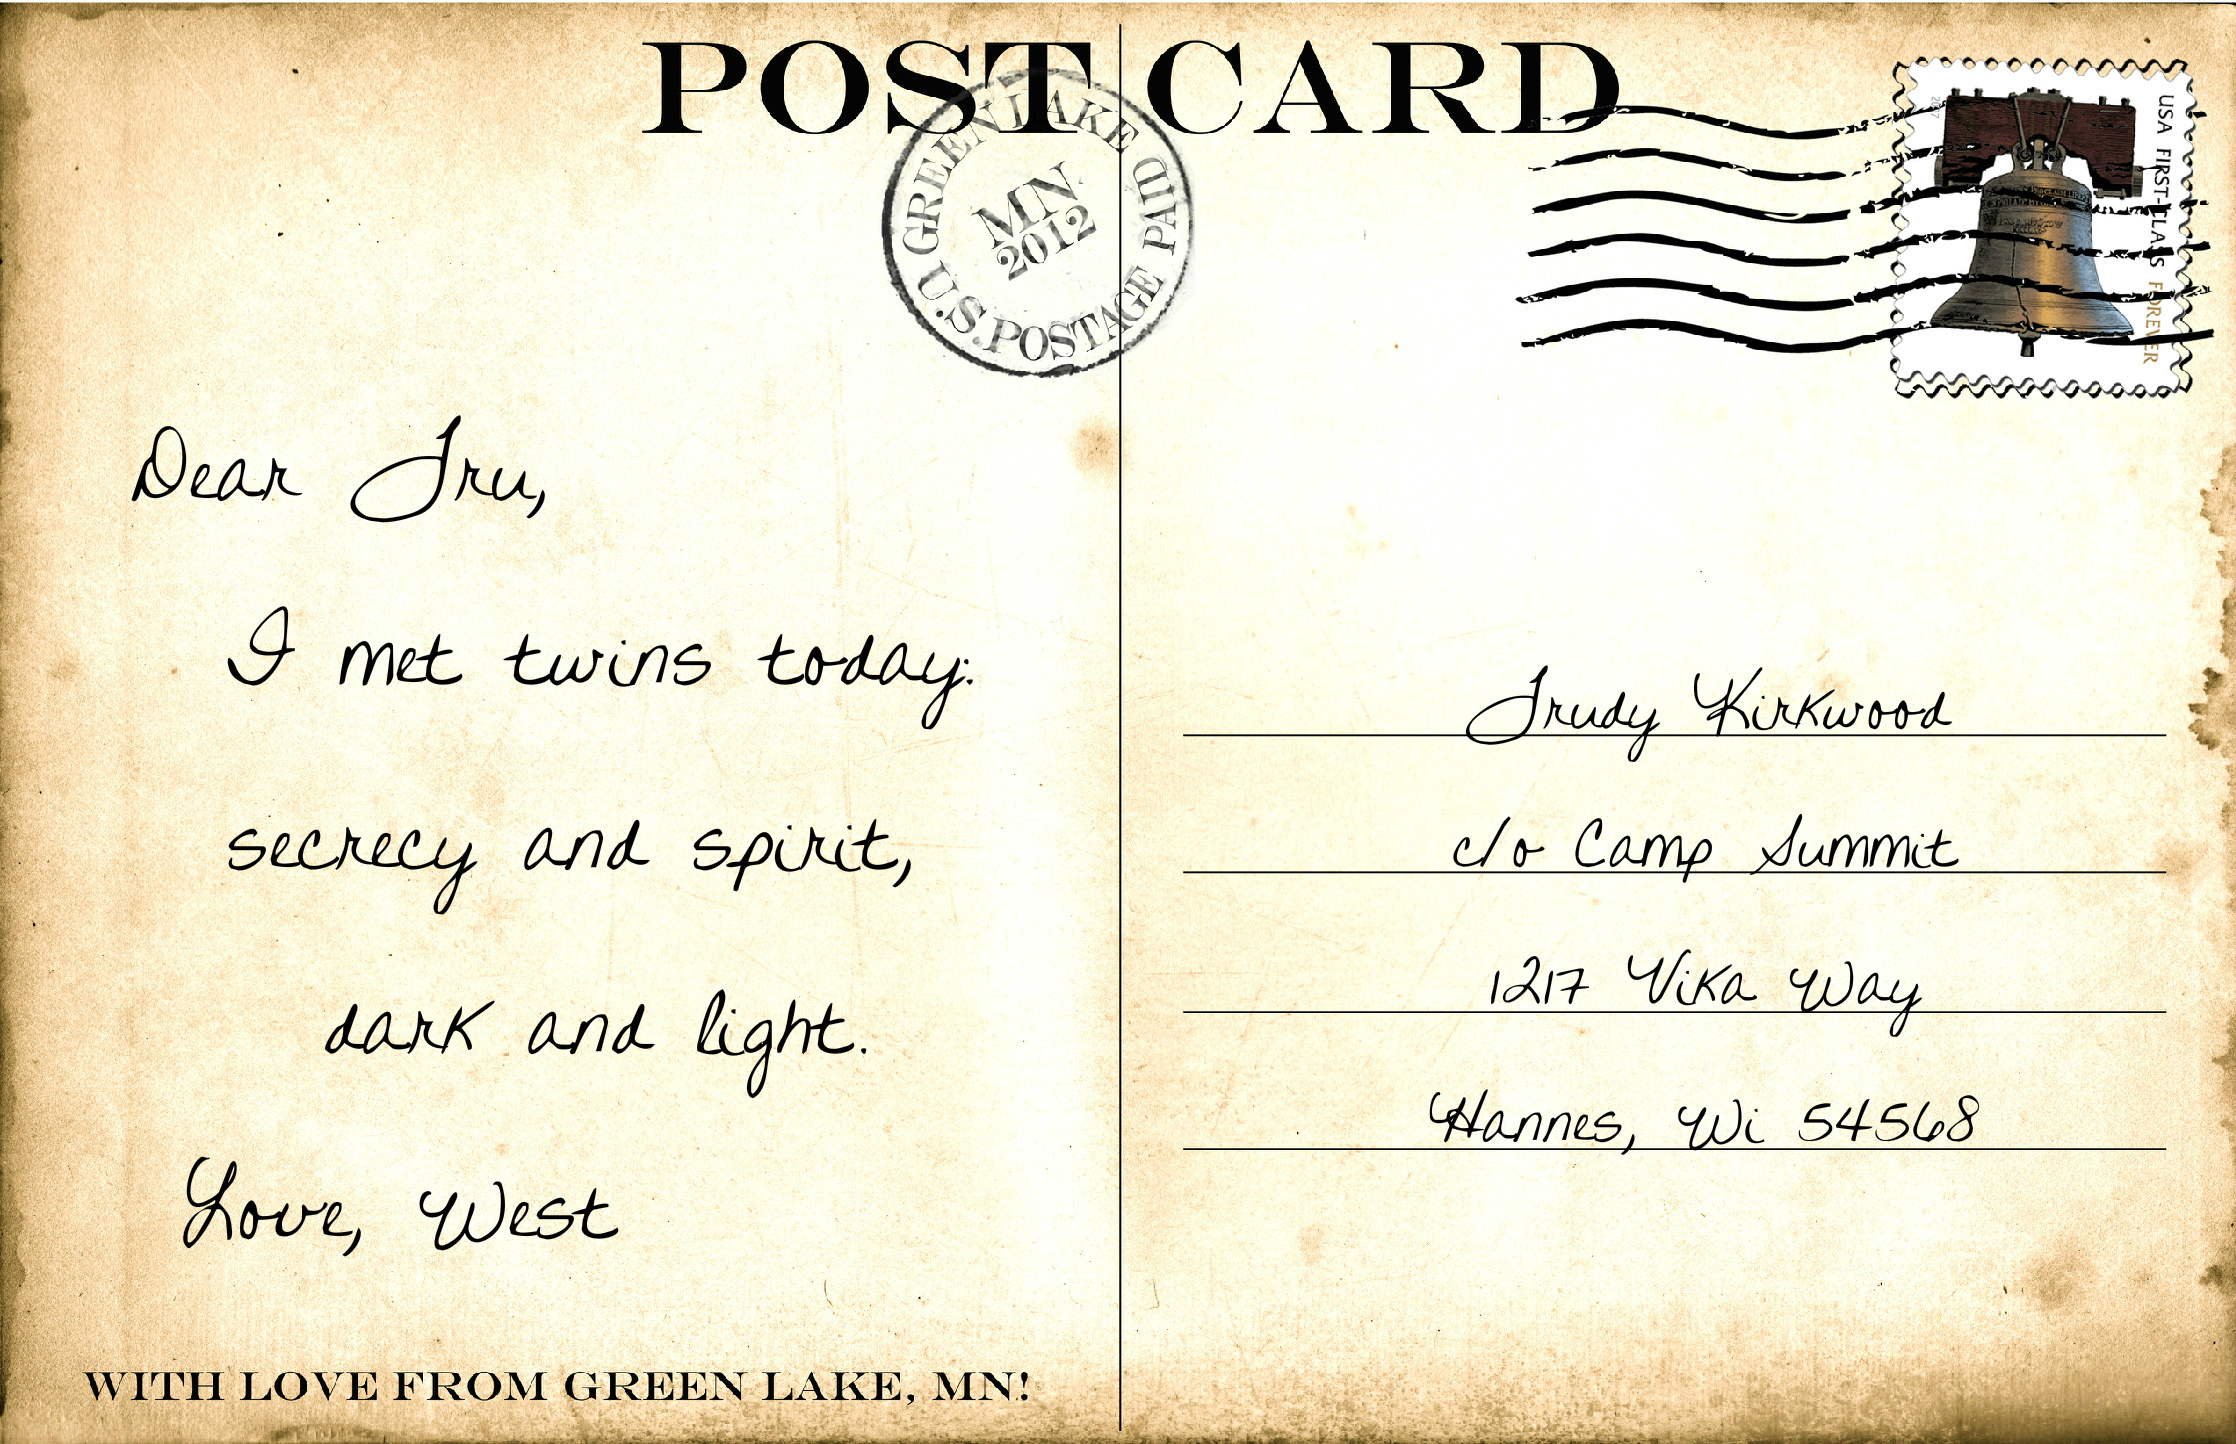 POST CARD
GREEN LAKE
MN
2012
U.S. POSTAGE PAID
USA FIRST-CLASS FOREVER
2007
Dear Tru,
I met twins today:
secrecy and spirit,
dark and light.
Love, West
Trudy Kirkwood
c/o Camp Summit
1217 Vika Way
Hannes, Wi 54568
WITH LOVE FROM GREEN LAKE, MN!